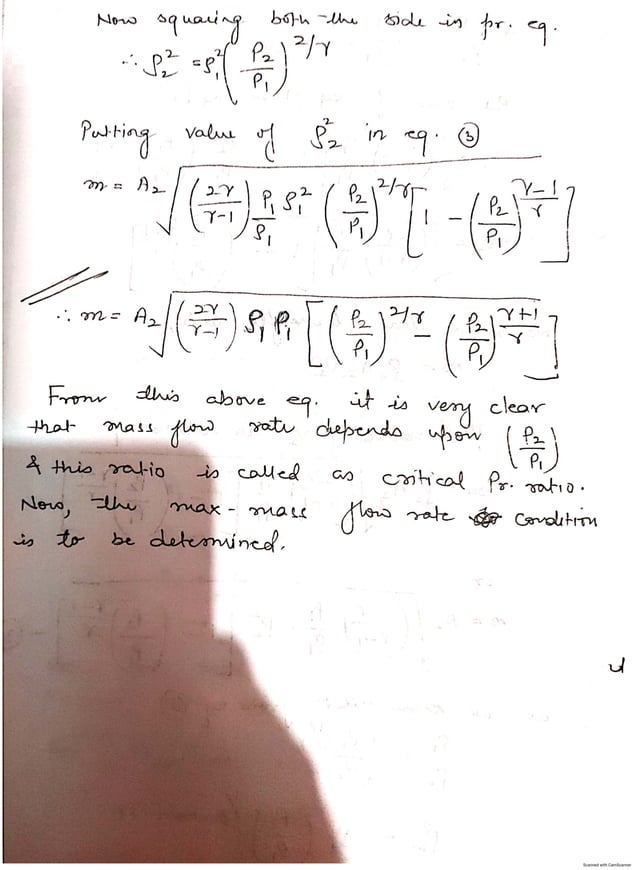 Now squaring both the side in pr. eq.
∴ ρ₂² = ρ₁² (P₂/P₁)^(2/γ)
Putting value of ρ₂² in eq. ③
m = A₂ √( (2γ/(γ-1)) P₁/ρ₁ ρ₁² (P₂/P₁)^(2/γ) [1 - (P₂/P₁)^((γ-1)/γ)] )
∴ m = A₂ √( (2γ/(γ-1)) ρ₁ P₁ [(P₂/P₁)^(2/γ) - (P₂/P₁)^((γ+1)/γ)] )
From this above eq. it is very clear
that mass flow rate depends upon (P₂/P₁)
& this ratio is called as critical Pr. ratio.
Now, the max-mass flow rate condition
is to be determined.
Scanned with CamScanner